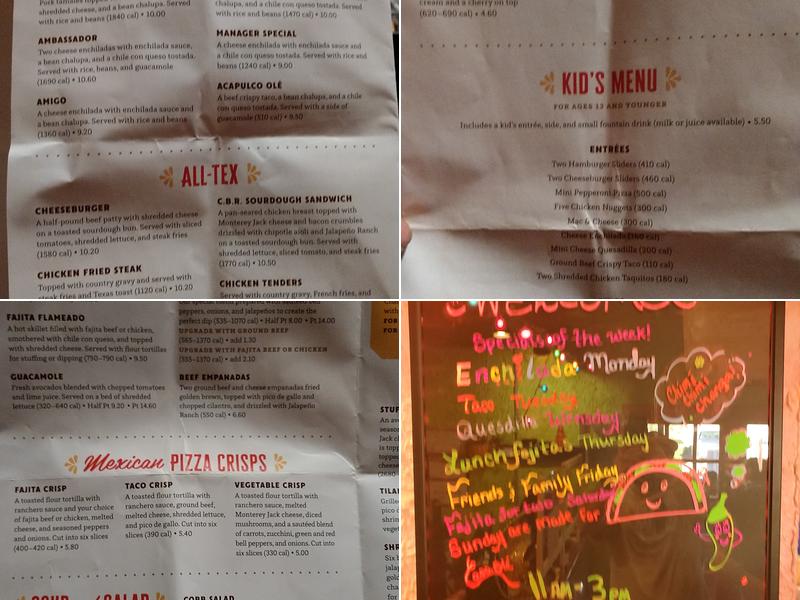 Pork tamales topped
shredded cheese, and a bean chalupa. Served
with rice and beans (1840 cal) • 10.00
AMBASSADOR
Two cheese enchiladas with enchilada sauce,
a bean chalupa, and a chile con queso tostada.
Served with rice, beans, and guacamole
(1690 cal) • 10.60
AMIGO
A cheese enchilada with enchilada sauce and
a bean chalupa. Served with rice and beans
(1360 cal) • 9.20
chalupa, and a chile con queso tostada.
Served with rice and beans (1470 cal) • 10.00
MANAGER SPECIAL
A cheese enchilada with enchilada sauce and
a chile con queso tostada. Served with rice and
beans (1240 cal) • 9.00
ACAPULCO OLÉ
A beef crispy taco, a bean chalupa, and a chile
con queso tostada. Served with a side of
guacamole (510 cal) • 9.50
ALL-TEX
CHEESEBURGER
A half-pound beef patty with shredded cheese
on a toasted sourdough bun. Served with sliced
tomatoes, shredded lettuce, and steak fries
(1580 cal) • 10.20
CHICKEN FRIED STEAK
Topped with country gravy and served with
steak fries and Texas toast (1120 cal) • 10.20
C.B.R. SOURDOUGH SANDWICH
A pan-seared chicken breast topped with
Monterey Jack cheese and bacon crumbles
drizzled with chipotle aioli and Jalapeño Ranch
on a toasted sourdough bun. Served with
shredded lettuce, sliced tomato, and steak fries
(1770 cal) • 10.50
CHICKEN TENDERS
Served with country gravy, French fries, and
cream and a cherry on top
(620-690 cal) • 4.60
KID'S MENU
FOR AGES 13 AND YOUNGER
Includes a kid's entrée, side, and small fountain drink (milk or juice available) • 5.50
ENTRÉES
Two Hamburger Sliders (410 cal)
Two Cheeseburger Sliders (460 cal)
Mini Pepperoni Pizza (500 cal)
Five Chicken Nuggets (300 cal)
Mac & Cheese (300 cal)
Cheese Enchilada (160 cal)
Mini Cheese Quesadilla (300 cal)
Ground Beef Crispy Taco (110 cal)
Two Shredded Chicken Taquitos (180 cal)
FAJITA FLAMEADO
A hot skillet filled with fajita beef or chicken,
smothered with chile con queso, and topped
with shredded cheese. Served with flour tortillas
for stuffing or dipping (730-790 cal) • 9.50
GUACAMOLE
Fresh avocados blended with chopped tomatoes
and lime juice. Served on a bed of shredded
lettuce (320-640 cal) • Half Pt 9.20 • Pt 14.60
peppers, onions, and jalapeños to create the
perfect dip (535-1070 cal) • Half Pt 8.00 • Pt 14.00
UPGRADE WITH GROUND BEEF
(565-1370 cal) • add 1.30
UPGRADE WITH FAJITA BEEF OR CHICKEN
(555-1370 cal) • add 2.10
BEEF EMPANADAS
Two ground beef and cheese empanadas fried
golden brown, topped with pico de gallo and
chopped cilantro, and drizzled with Jalapeño
Ranch (550 cal) • 6.60
Mexican PIZZA CRISPS
FAJITA CRISP
A toasted flour tortilla with
ranchero sauce and your choice
of fajita beef or chicken, melted
cheese, and seasoned peppers
and onions. Cut into six slices
(400-420 cal) • 5.80
TACO CRISP
A toasted flour tortilla with
ranchero sauce, ground beef,
melted cheese, shredded lettuce,
and pico de gallo. Cut into six
slices (390 cal) • 5.40
VEGETABLE CRISP
A toasted flour tortilla with
ranchero sauce, melted
Monterey Jack cheese, diced
mushrooms, and a sautéed blend
of carrots, zucchini, green and red
bell peppers, and onions. Cut into
six slices (330 cal) • 5.00
COBB SALAD
Specials of the week!
Enchilada Monday
Taco Tuesday
Quesadilla Wensday
Lunch fajitas Thursday
Friends & Family Friday
Fajita for two Saturday
Sunday are made for
11am - 3pm